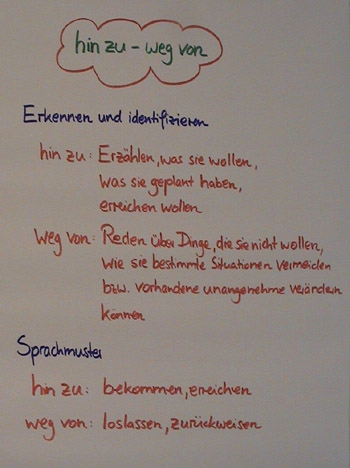 hin zu - weg von
Erkennen und identifizieren
hin zu: Erzählen, was sie wollen,
was sie geplant haben,
erreichen wollen
weg von: Reden über Dinge, die sie nicht wollen,
wie sie bestimmte Situationen vermeiden
bzw. vorhandene unangenehme verändern
können
Sprachmuster
hin zu: bekommen, erreichen
weg von: loslassen, zurückweisen